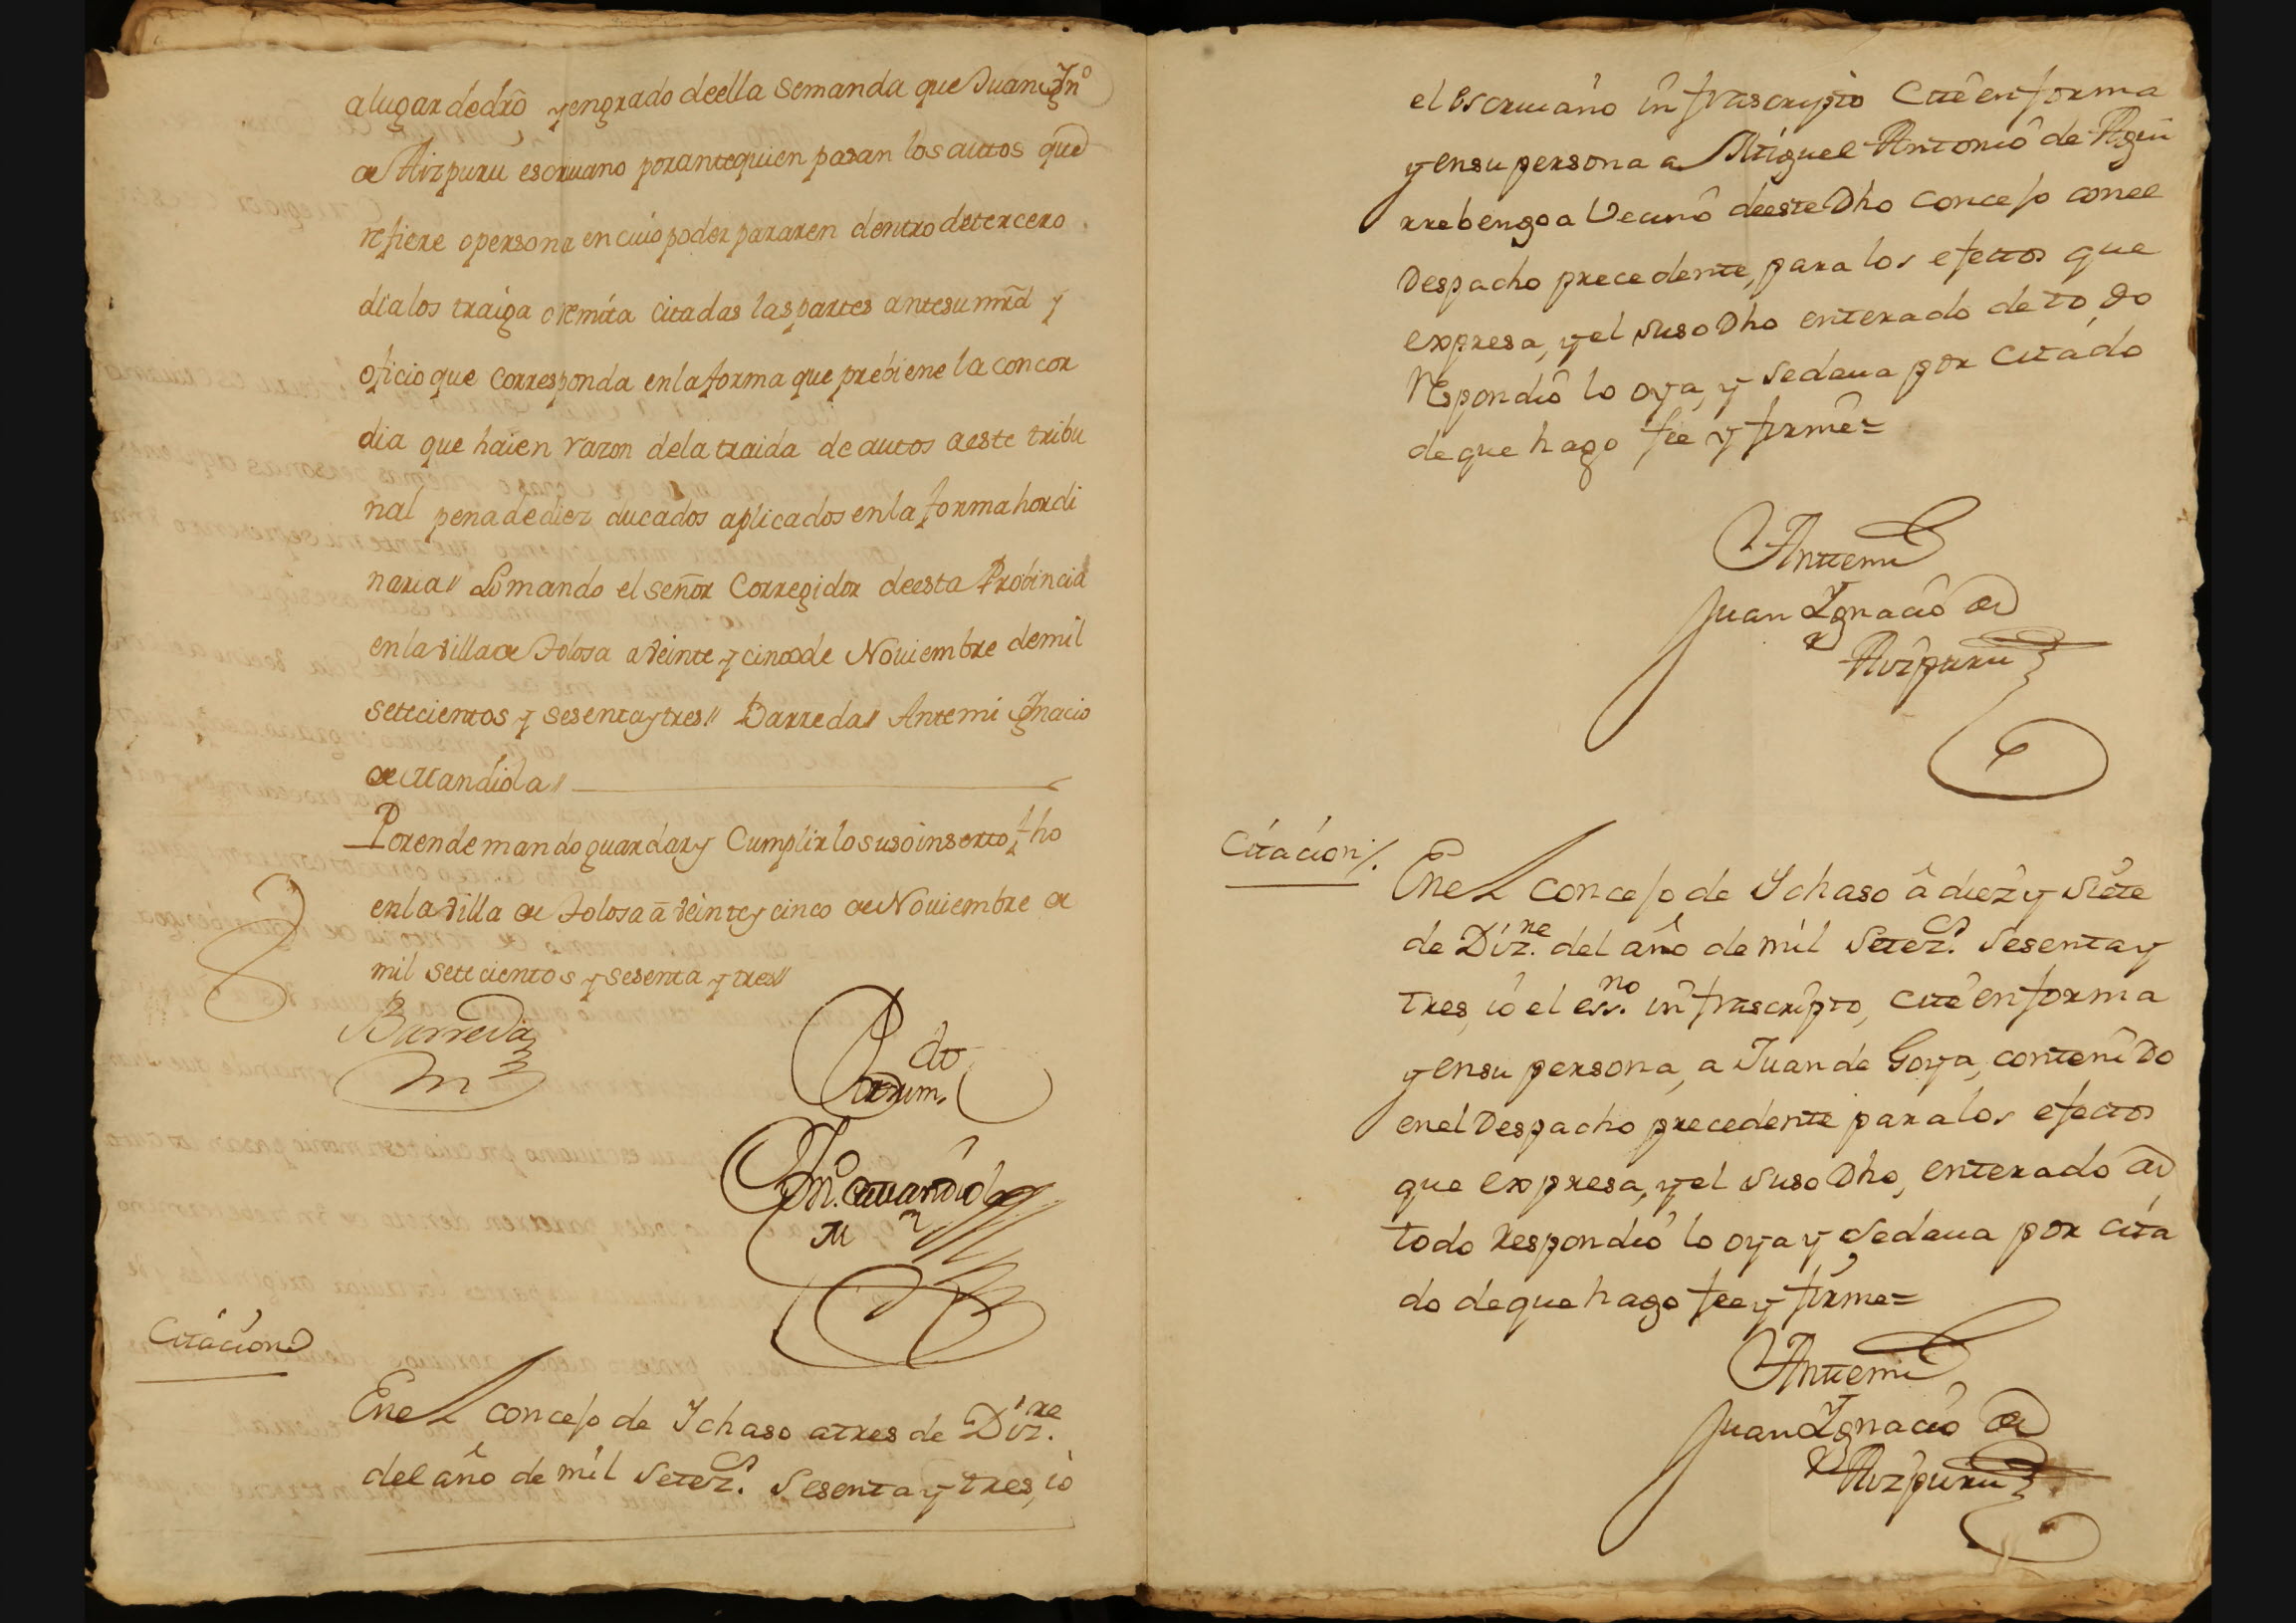 a lugar de dro y en grado de ella se manda que Juan Ygn.º
de Aizpuru escriuano por ante quien pasan los autos que
refiere o persona en cuio poder pararen dentro de tercero
dia los traiga o remita citadas las partes ante su mrd y
oficio que corresponda en la forma que prebiene la concor
dia que hai en razon de la traida de autos a este tribu
nal pena de diez ducados aplicados en la forma hordi
naria// Lo mando el señor Corregidor de esta Probincia
en la villa de Tolosa a veinte y cinco de Nouiembre de mil
setecientos y sesenta y tres// Barreda// Ante mi Ignacio
de Mandiola//
Por ende mando guardar y Cumplir lo suso inserto fho
en la villa de Tolosa a veinte y cinco de Nouiembre de
mil setecientos y sesenta y tres//
Barreda
Ign.º Mandiola
Citacion
En el concejo de Ychaso a tres de Diz.re
del año de mil Setez.s Sesenta y tres, io
el escriuano infrascripto cite en forma
y en su persona a Miguel Antonio de Agui
rrebengoa Vecino de este Dho concejo con el
Despacho precedente, para los efectos que
expresa, y el suso Dho enterado de to do
Respondio lo oya, y se daua por citado
de que hago fee y firme=
Ante mi
Juan Ygnacio de
Aizpuru
Citacion/.
En el concejo de Ychaso a diez y siete
de Diz.re del año de mil Setez.s Sesenta y
tres, io el ess.no infrascripto, cite en forma
y en su persona, a Juan de Goya, contenido
en el Despacho precedente para los efectos
que expresa, y el suso Dho, enterado de
todo Respondio lo oya y se daua por cita
do de que hago fee y firme=
Ante mi
Juan Ygnacio de
Aizpuru